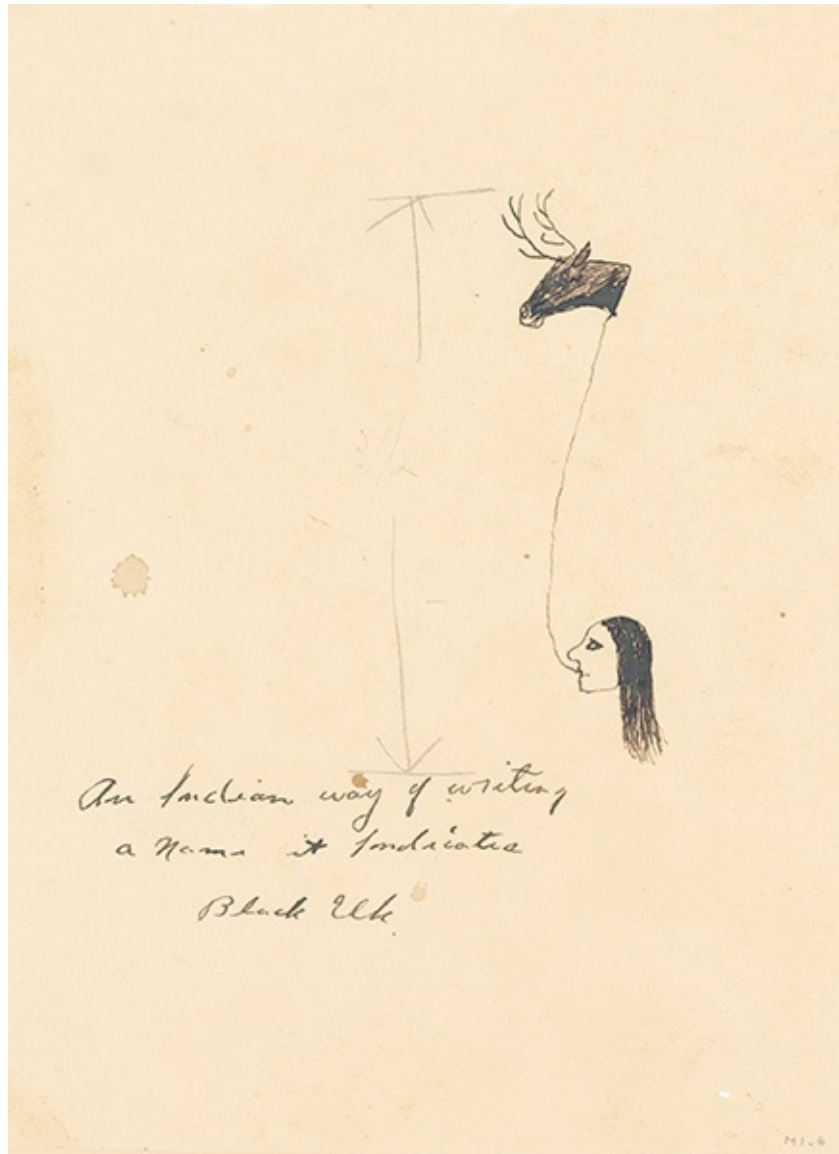 An Indian way of writing
a Name it Indicates
Black Elk.
M1-6